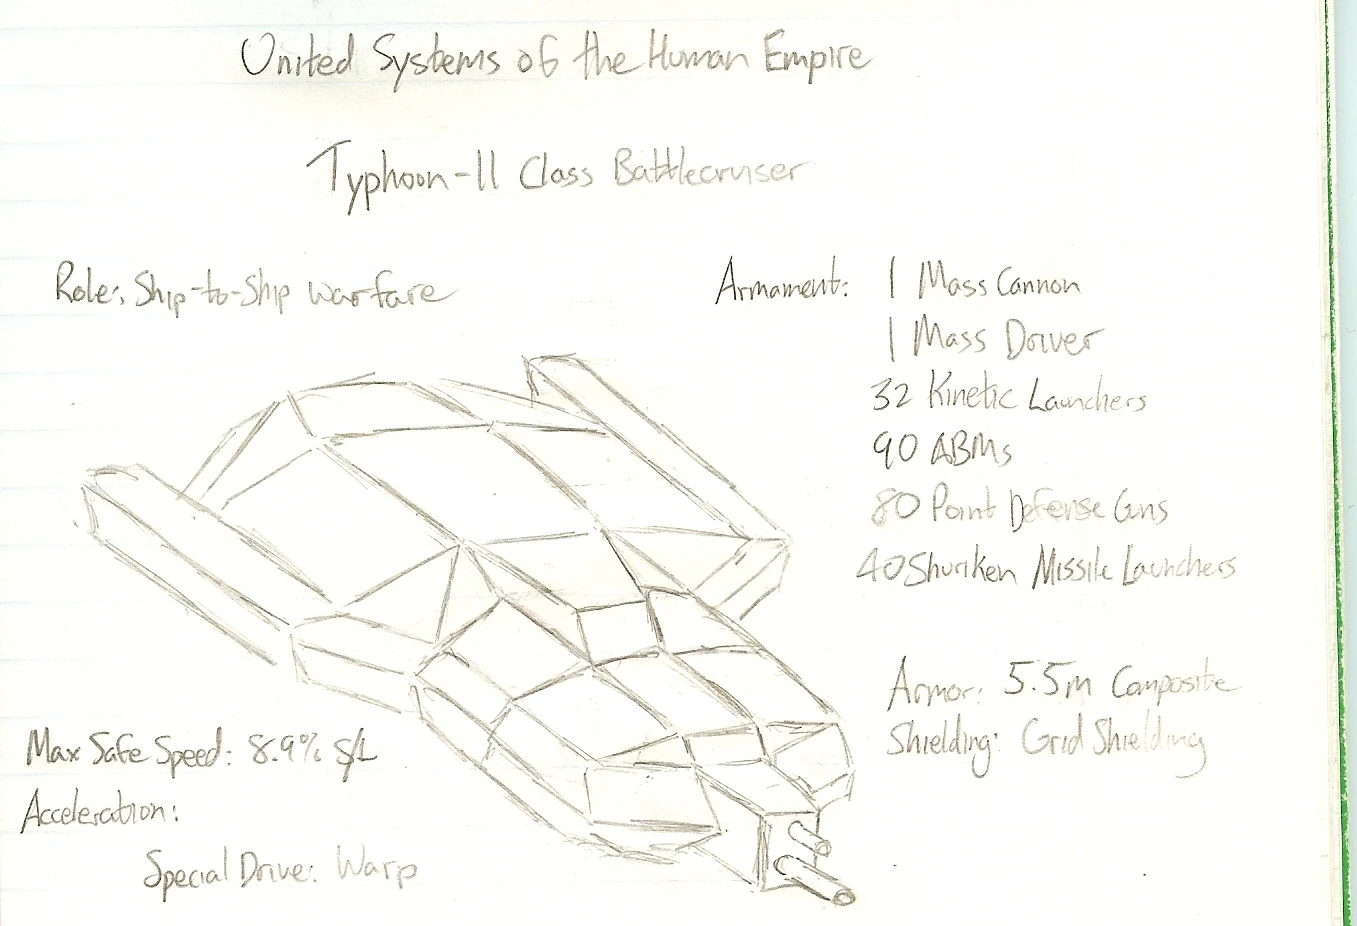 United Systems of the Human Empire
Typhoon-II Class Battlecruiser
Role: Ship-to-Ship Warfare
Armament: 1 Mass Cannon
1 Mass Driver
32 Kinetic Launchers
90 ABMs
80 Point Defense Guns
40 Shuriken Missile Launchers
Armor: 5.5m Composite
Shielding: Grid Shielding
Max Safe Speed: 8.9% S/L
Acceleration:
Special Drive: Warp